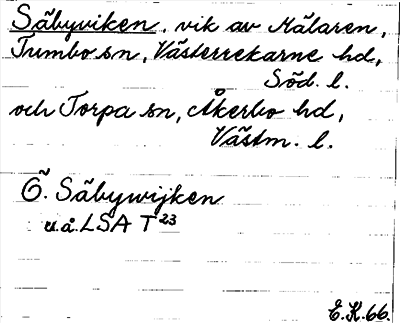 Säbyviken, vik av Mälaren,
Tumbo sn, Västerrekarne hd,
Söd. l.
och Torpa sn, Åkerbo hd,
Västm. l.
Ö. Säbywijken
u.å. LSA T 23
E.K. 66.